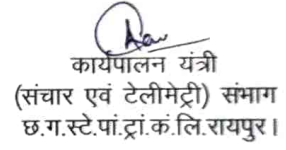 कार्यपालन यंत्री
(संचार एवं टेलीमेट्री) संभाग
छ.ग.स्टे.पां.ट्रां.कं.लि.रायपुर।